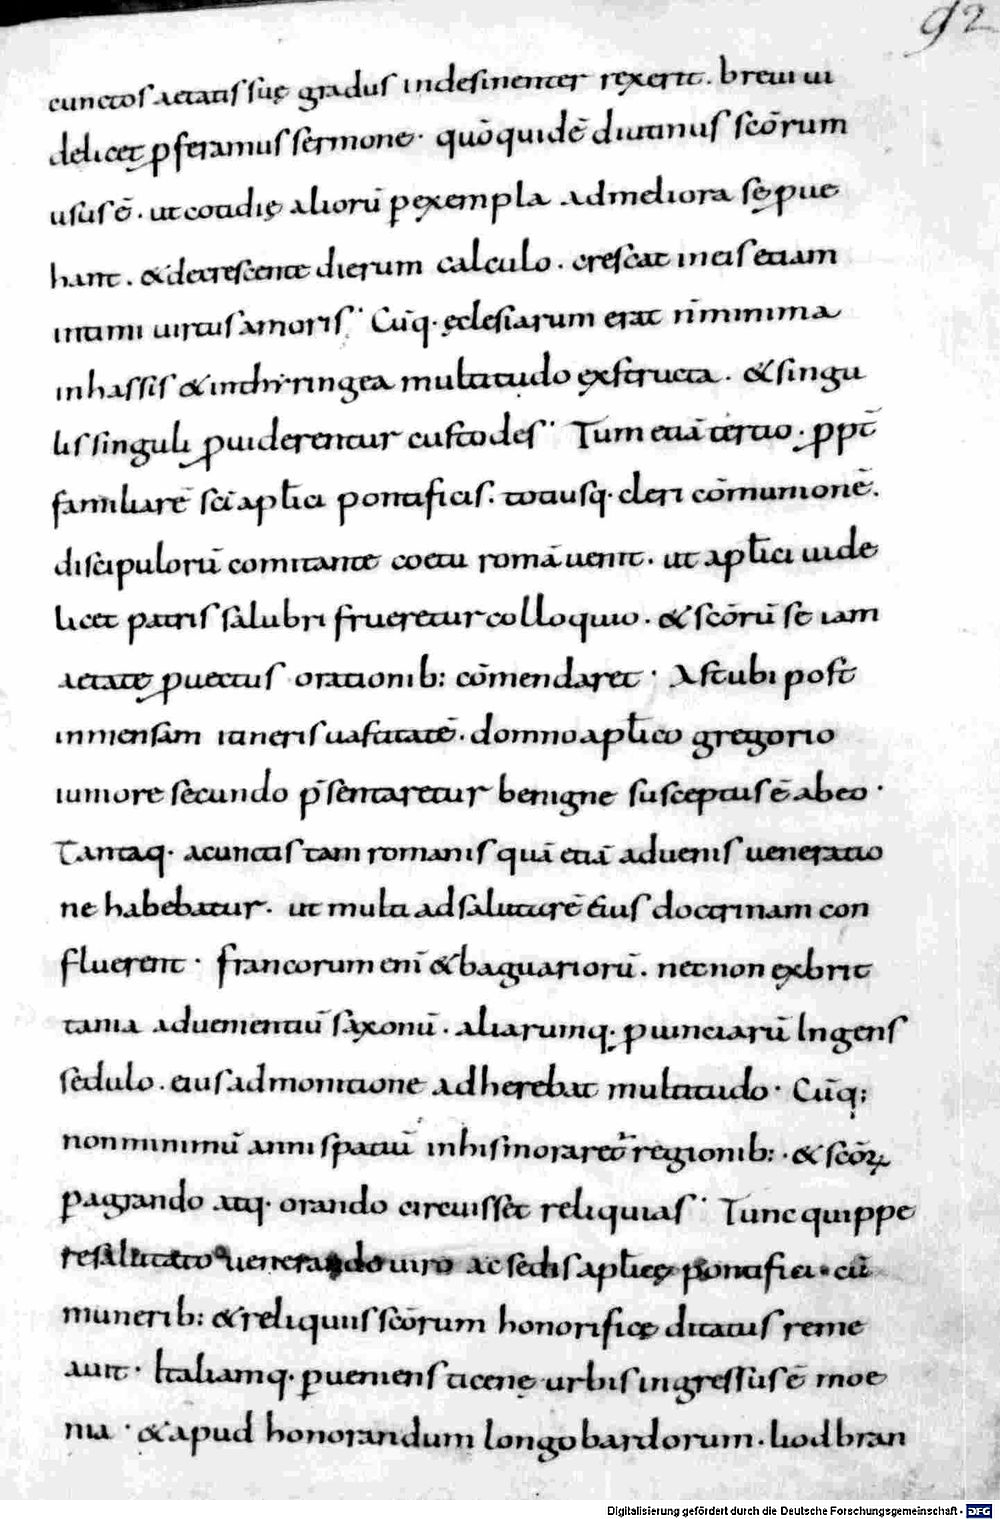 92
cunctos aetatis suę gradus indesinenter rexerit. breui ui
delicet pferamus sermone· quō quidē diutinus scōrum
usus ē. ut cotidię aliorū p exempla ad meliora sępue
hant. & decrescente dierum calculo. crescat in eis etiam
intimi uirtus amoris· Cūq· ęclesiarum erat n̄ minima
in hassis & in thyringea multitudo exstructa. & singu
lis singuli puiderentur custodes· Tum etiā tertio. ppt̄
familiarē sc̄i apl̄ici pontificis. totiusq· cleri cōmunionē.
discipulorū comitante coetu romā uenit. ut apl̄ici uide
licet patris salubri frueretur colloquio. & scōrū se iam
aetate puectus orationib: cōmendaret· Ast ubi post
inmensam itineris uastitatē. domno apl̄ico gregorio
iuniore secundo p̄sentaretur benigne susceptus ē ab eo·
Tantaq· a cunctis tam romanis quā etiā aduenis ueneratio
ne habebatur. ut multi ad salutarē eius doctrinam con
fluerent· francorum enī & baguariorū. necnon ex brit
tania aduenientiū saxonū. aliarumq· puinciarū Ingens
sedulo. eius admonitione adherebat multitudo· Cūq;
non minimū anni spatiū in his moraret̄ regionib:·& scōꝝ
pagrando atq· orando circuisset reliquias· Tunc quippe
resalutato uenerando uiro ac sedis apl̄icę pontifici· cū
munerib: & reliquiis scōrum honorificę ditatus reme
auit· Italiamq· pueniens ticenę urbis ingressus ē moe
nia· & apud honorandum longobardorum. liodbran
Digitalisierung gefördert durch die Deutsche Forschungsgemeinschaft - DFG